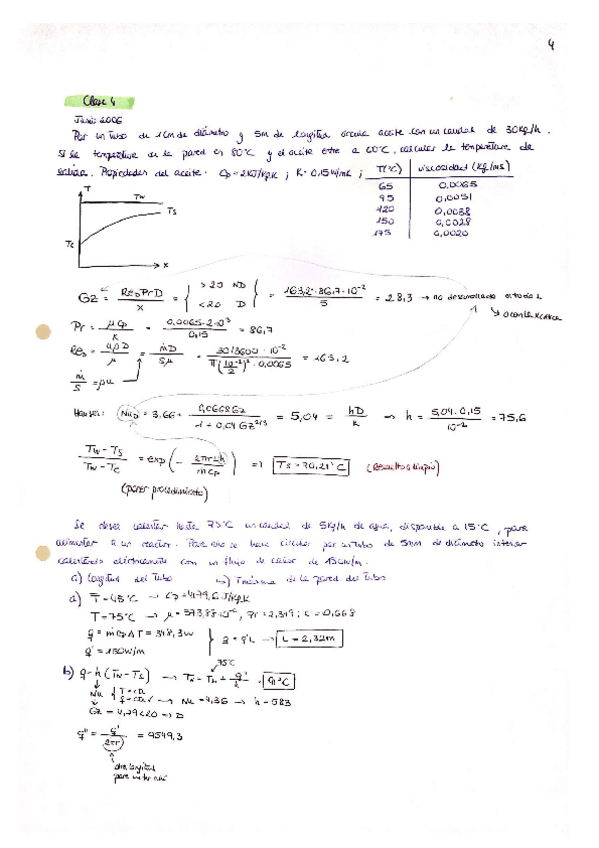 4
Clase 4
Junio 2006
Por un tubo de 1cm de diámetro y 5m de longitud circula aceite con un caudal de 30kg/h.
Si la temperatura de la pared en 80°C y el aceite entra a 60°C, calcular la temperatura de
salida. Propiedades del aceite: Cp=2KJ/KgK ; K=0,15W/mK ;
T(°C) viscosidad (Kg/ms)
65 0,0065
95 0,0051
120 0,0038
150 0,0028
175 0,0020
T
Tw
Ts
Tc
x
Gz = ReD Pr D / x = { >20 ND <20 D } = 163,2·86,7·10⁻² / 5 = 28,3 → no desarrollada
Pr = μCp / K = 0,0065·2·10³ / 0,15 = 86,7
ReD = ρuD / μ = ṁD / Sμ = 30/3600 · 10⁻² / π(10⁻²/2)² · 0,0065 = 163,2
ṁ/S = ρu
Hausen: NuD = 3,66 + 0,0668Gz / 1+0,04Gz^2/3 = 5,04 = hD / K → h = 5,04·0,15 / 10⁻² = 75,6
Tw-Ts / Tw-Tc = exp(- 2πrLh / ṁCp) => Ts = 70,21°C (Resultado limpio)
(poner procedimiento)
Se desea calentar hasta 75°C un caudal de 5Kg/h de agua, disponible a 15°C, para
alimentar a un reactor. Para ello se hace circular por un tubo de 5mm de diámetro interior
calentado eléctricamente con un flujo de calor de
a) Longitud del tubo b) T máxima de la pared del tubo
a) T̄=45°C → Cp=4179,6 J/KgK
T=75°C → μ=373,88·10⁻⁶, Pr=2,349; K=0,668
q = ṁCpΔT = 348,3W
q' = 150W/m
q = q'L → L = 2,32m
b) q=h(Tw-Ts) → Tw = Ts + q'/h = 91°C
75°C
Nu → Nu=4,36 → h=583
Gz = 4,79<20 => D
q'' = q' / 2πr = 9549,3